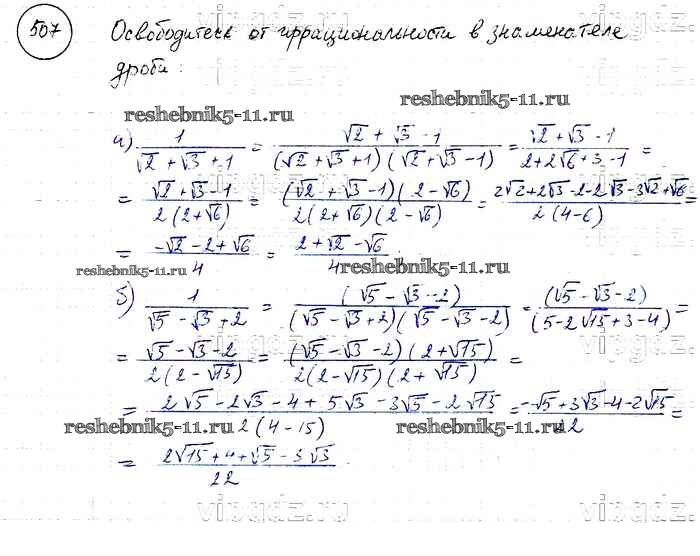 507 Освободитесь от иррациональности в знаменателе
дроби:
reshebnik5-11.ru reshebnik5-11.ru
а) 1/(√2+√3+1) = (√2+√3-1)/((√2+√3+1)(√2+√3-1)) = (√2+√3-1)/(2+2√6+3-1) =
= (√2+√3-1)/(2(2+√6)) = ((√2+√3-1)(2-√6))/(2(2+√6)(2-√6)) = (2√2+2√3-2-2√3-3√2+√6)/(2(4-6)) =
= (-√2-2+√6)/4 = (2+√2-√6)/4.
reshebnik5-11.ru reshebnik5-11.ru
б) 1/(√5-√3+2) = (√5-√3-2)/((√5-√3+2)(√5-√3-2)) = (√5-√3-2)/(5-2√15+3-4) =
= (√5-√3-2)/(2(2-√15)) = ((√5-√3-2)(2+√15))/(2(2-√15)(2+√15)) =
= (2√5-2√3-4+5√3-3√5-2√15)/(2(4-15)) = (-√5+3√3-4-2√15)/22 =
reshebnik5-11.ru reshebnik5-11.ru
= (2√15+4+√5-3√3)/22
vipgdz.ru vipgdz.ru